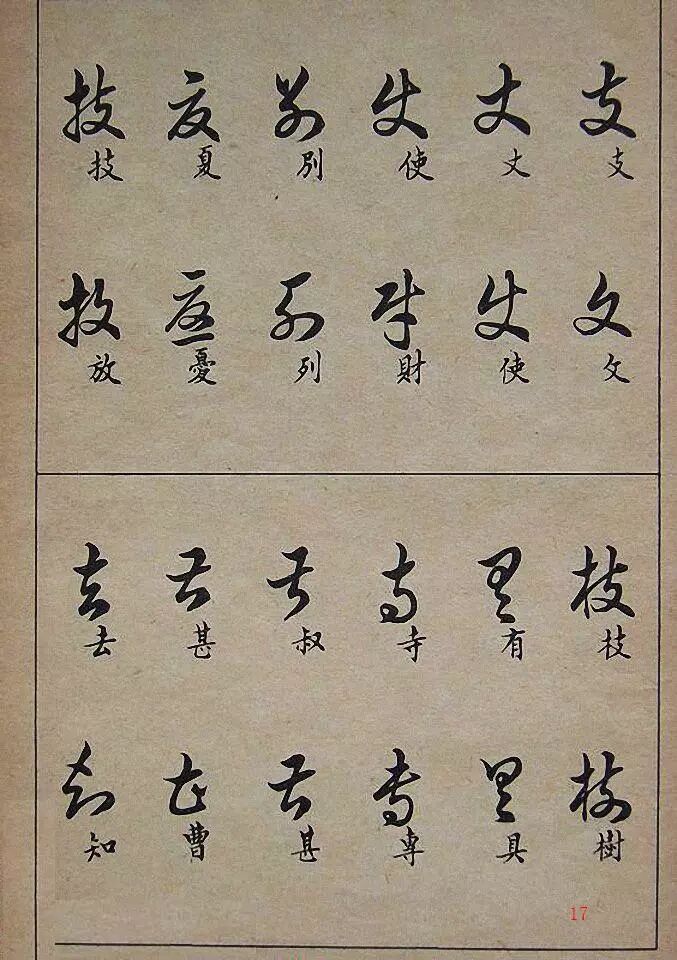 支 支 文 文
丈 丈 使 使
使 使 財 財
別 別 列 列
夏 夏 憂 憂
技 技 放 放
枝 枝 樹 樹
有 有 具 具
寺 寺 專 專
叔 叔 甚 甚
甚 甚 曹 曹
去 去 知 知
17